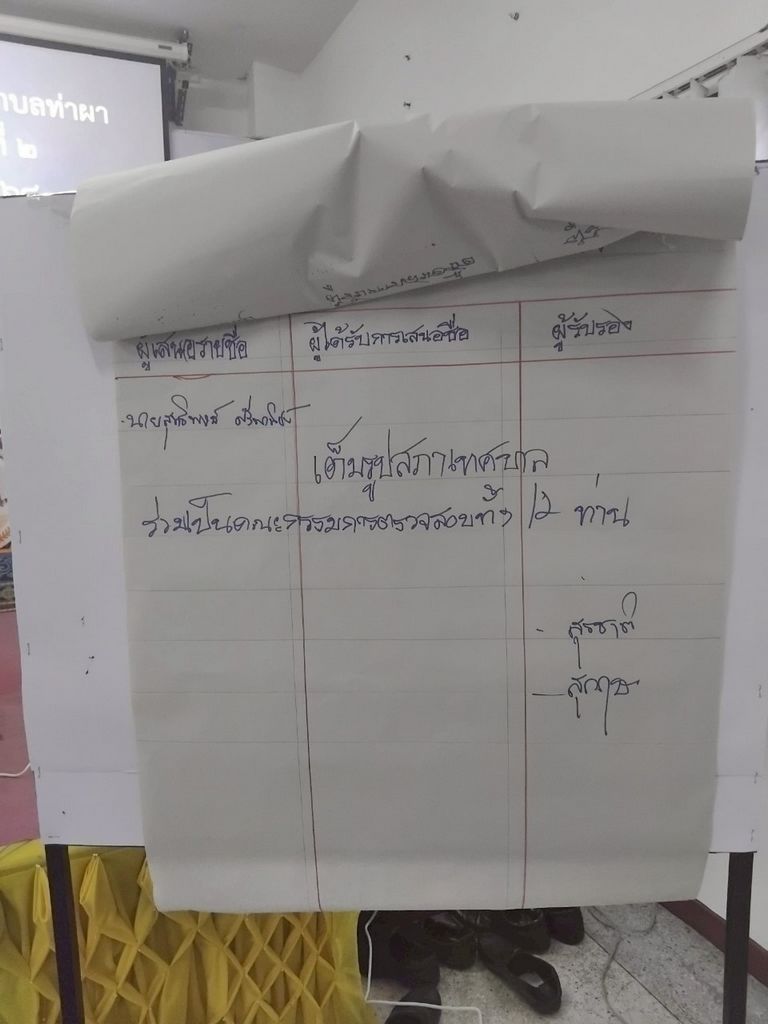 บลท่าผา
ที่ ๒
ผู้เสนอรายชื่อ ผู้ได้รับการเสนอชื่อ ผู้รับรอง
- นาย
เต็มรูปสภาเทศบาล
ร่วมเป็นคณะกรรมการตรวจสอบทั้ง 12 ท่าน
- สุรชาติ